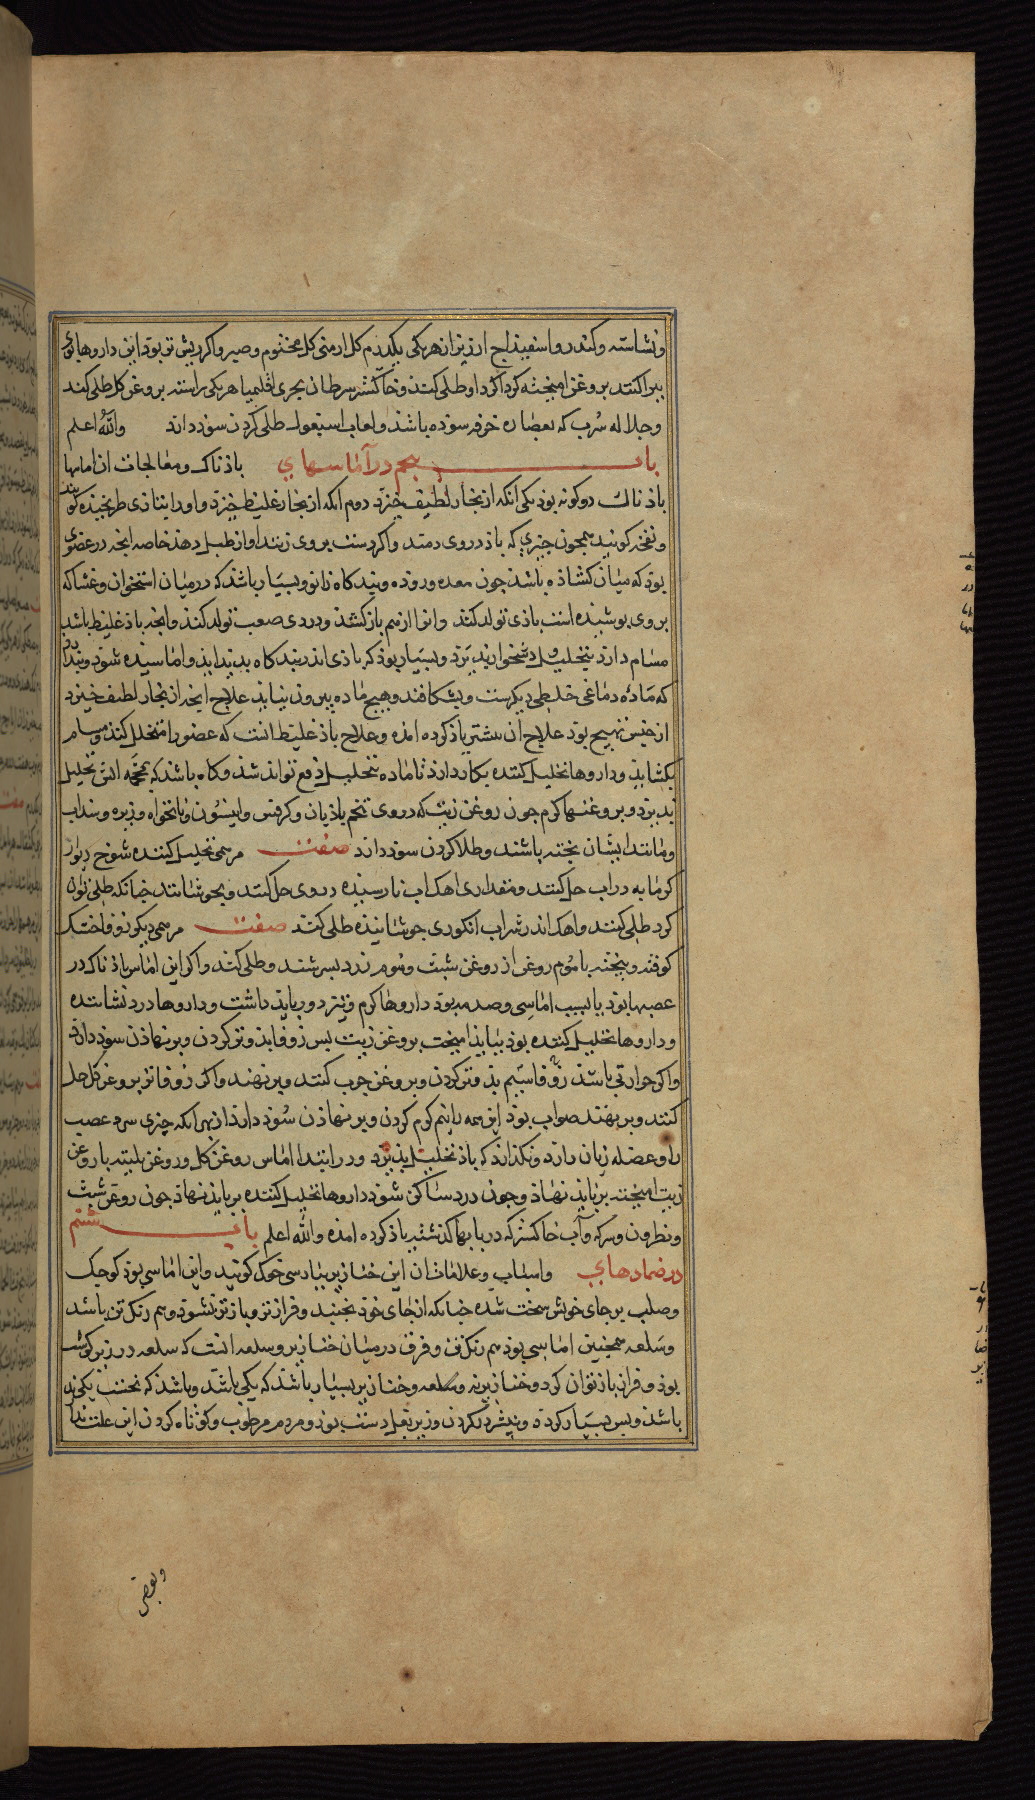 ونشاسته وکندر و اسفیذاج ارزیز از هر یکی یکدرم کل ارمنی کل مختوم وصبر واکر ریش تر بوذ این داروها
براکنند بروغن امیخته کرداکرد او طلی کنند وخاکستر سرطان بحری اقلیمیا هر یکی راسته بروغن کل طلی کنند
وجلاله سرب که بعصاره خرفه سوذه باشذ ولعاب اسبغول طلی کردن سوذ دارد والله اعلم
باب بنجم در آماسهای باذناک ومعالجات ان اماسها
باذناک دو کونه بوذ یکی انکه از بخار لطیف خیزد دوم انکه از بخار غلیظ خیزد واورا بتازی
ونفخه کویند همجون جیزی که باذ در وی دمند واکر دست بر وی زنند اواز طبل دهذ خاصه انجه در عضوی
بوذ که میان کشاذه باشذ جون معده وروده وبند کاه زانو وبسیار باشذ که در میان استخوان وغشا که
بروی بوشیذه است باذی تولد کند وانرا از هم باز کشذ ودردی صعب تولد کند وانجه باذ غلیظ باشد
مسام دارد بتحلیل دشخوار بذیرد وبسیار بوذ که باذی اندر بند کاه بدید ایذ واماسیذه شوذ
که ماده دماغی خلطی دیکرست وبشکافند وهیج ماده بیرون نیاید علاج انجه از بخار لطیف خیزد
از جنس تهبیج بوذ علاج ان بیشتر یاذ کرده امذه وعلاج باذ غلیظ انست که عضو را متخلخل کنند ومسام
بکشایذ وداروها تحلیل کننده بکار دارذ تا ماده بتحلیل دفع تواند شذ وکاه باشذ که بمحجمه اتش تحلیل
بذیرد وبروغنها کرم جون روغن زیت که در وی تخم باذیان وکرفس وانیسون ونانخواه وزیره وسداب
ومانند ایشان بخته باشند وطلا کردن سوذ دارد صفت مرهمی تحلیل کننده شوخ دیوار
کرمابه در اب حل کنند ومقداری اهک اب نارسیذه در وی حل کنند وبجوشانند جنانکه طلی توان
کرد طلی کنند واهک اندر شراب انکوری جوشانیذه طلی کنند صفت مرهمی دیکر زوفا خشک
کوفته وبیخته با موم روغن از روغن شبت وموم زرد بسرشند وطلی کنند واکر این اماس باذناک در
عصبها بوذ یا بسبب اماسی وصدمه بوذ داروها کرم وتیز دور باید داشت وداروها درد نشاننده
وداروها تحلیل کننده بوذ بیایذ امیخت بروغن زیت بس زوفا بذو تر کردن وبرنهاذن سوذ دارد
واکر حرارتی باشذ زوفا بسیم بذو تر کردن وبروغن جرب کنند وبرنهند واکر زوفا تر بروغن کل حل
کنند وبربهند صواب بوذ این همه را نیم کرم کردن وبرنهاذن سوذ دارد از بهر انکه جیزی سرد عصب
را وعضله زیان دارد ونکذارد که باذ تحلیل بذیرد ودر ابتدا اماس روغن کل وروغن بلیته با روغن
زیت امیخته برباید نهاذ وجون درد ساکن شوذ داروها تحلیل کننده برباید نهاذ جون روغن شبت
ونطرون وسرکه وآب خاکستر که در بابها کذشته یاذ کرده امذه والله اعلم باب ششم
در ضمادهای واسباب وعلامات ان این خنازیر بپارسی خوک کویند واین اماسی بوذ کوجک
وصلب بر جای خویش سخت شده جنانکه از جای خوذ نجنبد وفراز تر وباز تر نشوذ وهم رنک تن باشد
وسلعه همجنین اماسی بوذ هم رنک تن وفرق در میان خنازیر وسلعه انست که سلعه در زیر کوشت
بوذ وفراز باز توان کرد وخنازیر نه وسلعه وخنازیر بسیار باشذ که یکی باشد وباشذ که نخست یکی
باشذ وبس بسیار کردد وبیشتر در کردن وزیر بغل دست بوذ ومردم مرطوب وکوتاه کردن این علت
وبعضی